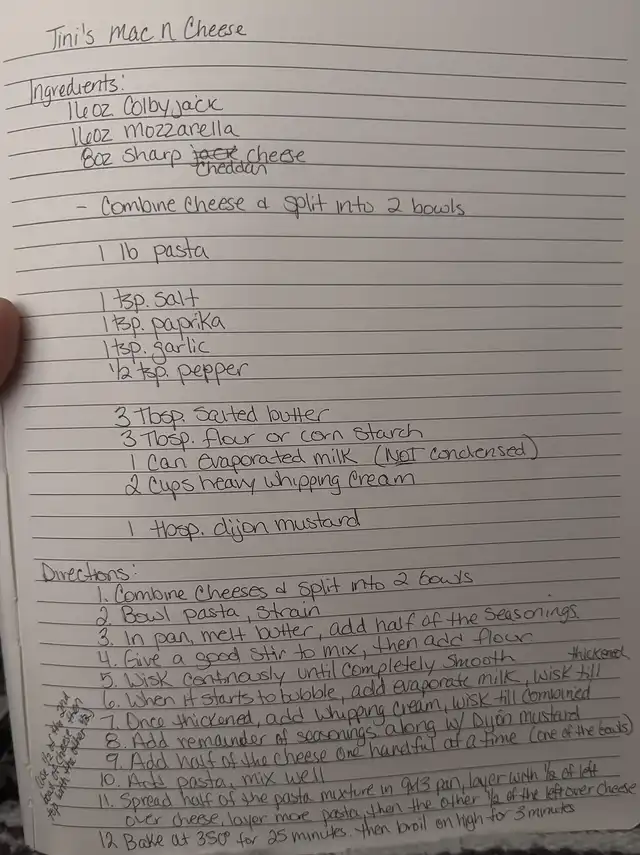 Tini's Mac n Cheese
Ingredients:
16oz Colbyjack
16oz Mozzarella
8oz Sharp jack cheese
Cheddar
- Combine cheese & split into 2 bowls
1 lb pasta
1 tsp. salt
1 tsp. paprika
1 tsp. garlic
1/2 tsp. pepper
3 Tbsp. salted butter
3 Tbsp. flour or corn starch
1 can evaporated milk (NOT condensed)
2 cups heavy whipping cream
1 tbsp. dijon mustard
Directions:
1. Combine cheeses & split into 2 bowls
2. Bowl pasta, strain
3. In pan, melt butter, add half of the seasonings
4. Give a good stir to mix, then add flour
5. Wisk continously until completely smooth
thickened
6. When it starts to bubble, add evaporate milk, wisk till
7. Once thickened, add whipping cream, wisk till combined
8. Add remainder of seasonings along w/ Dijon mustard
9. Add half of the cheese one handful at a time (one of the bowls)
10. Add pasta, mix well
11. Spread half of the pasta mixture in 9x13 pan, layer with 1/2 of left
over cheese, layer more pasta, then the other 1/2 of the leftover cheese
12 Bake at 350° for 25 minutes. then broil on high for 3 minutes